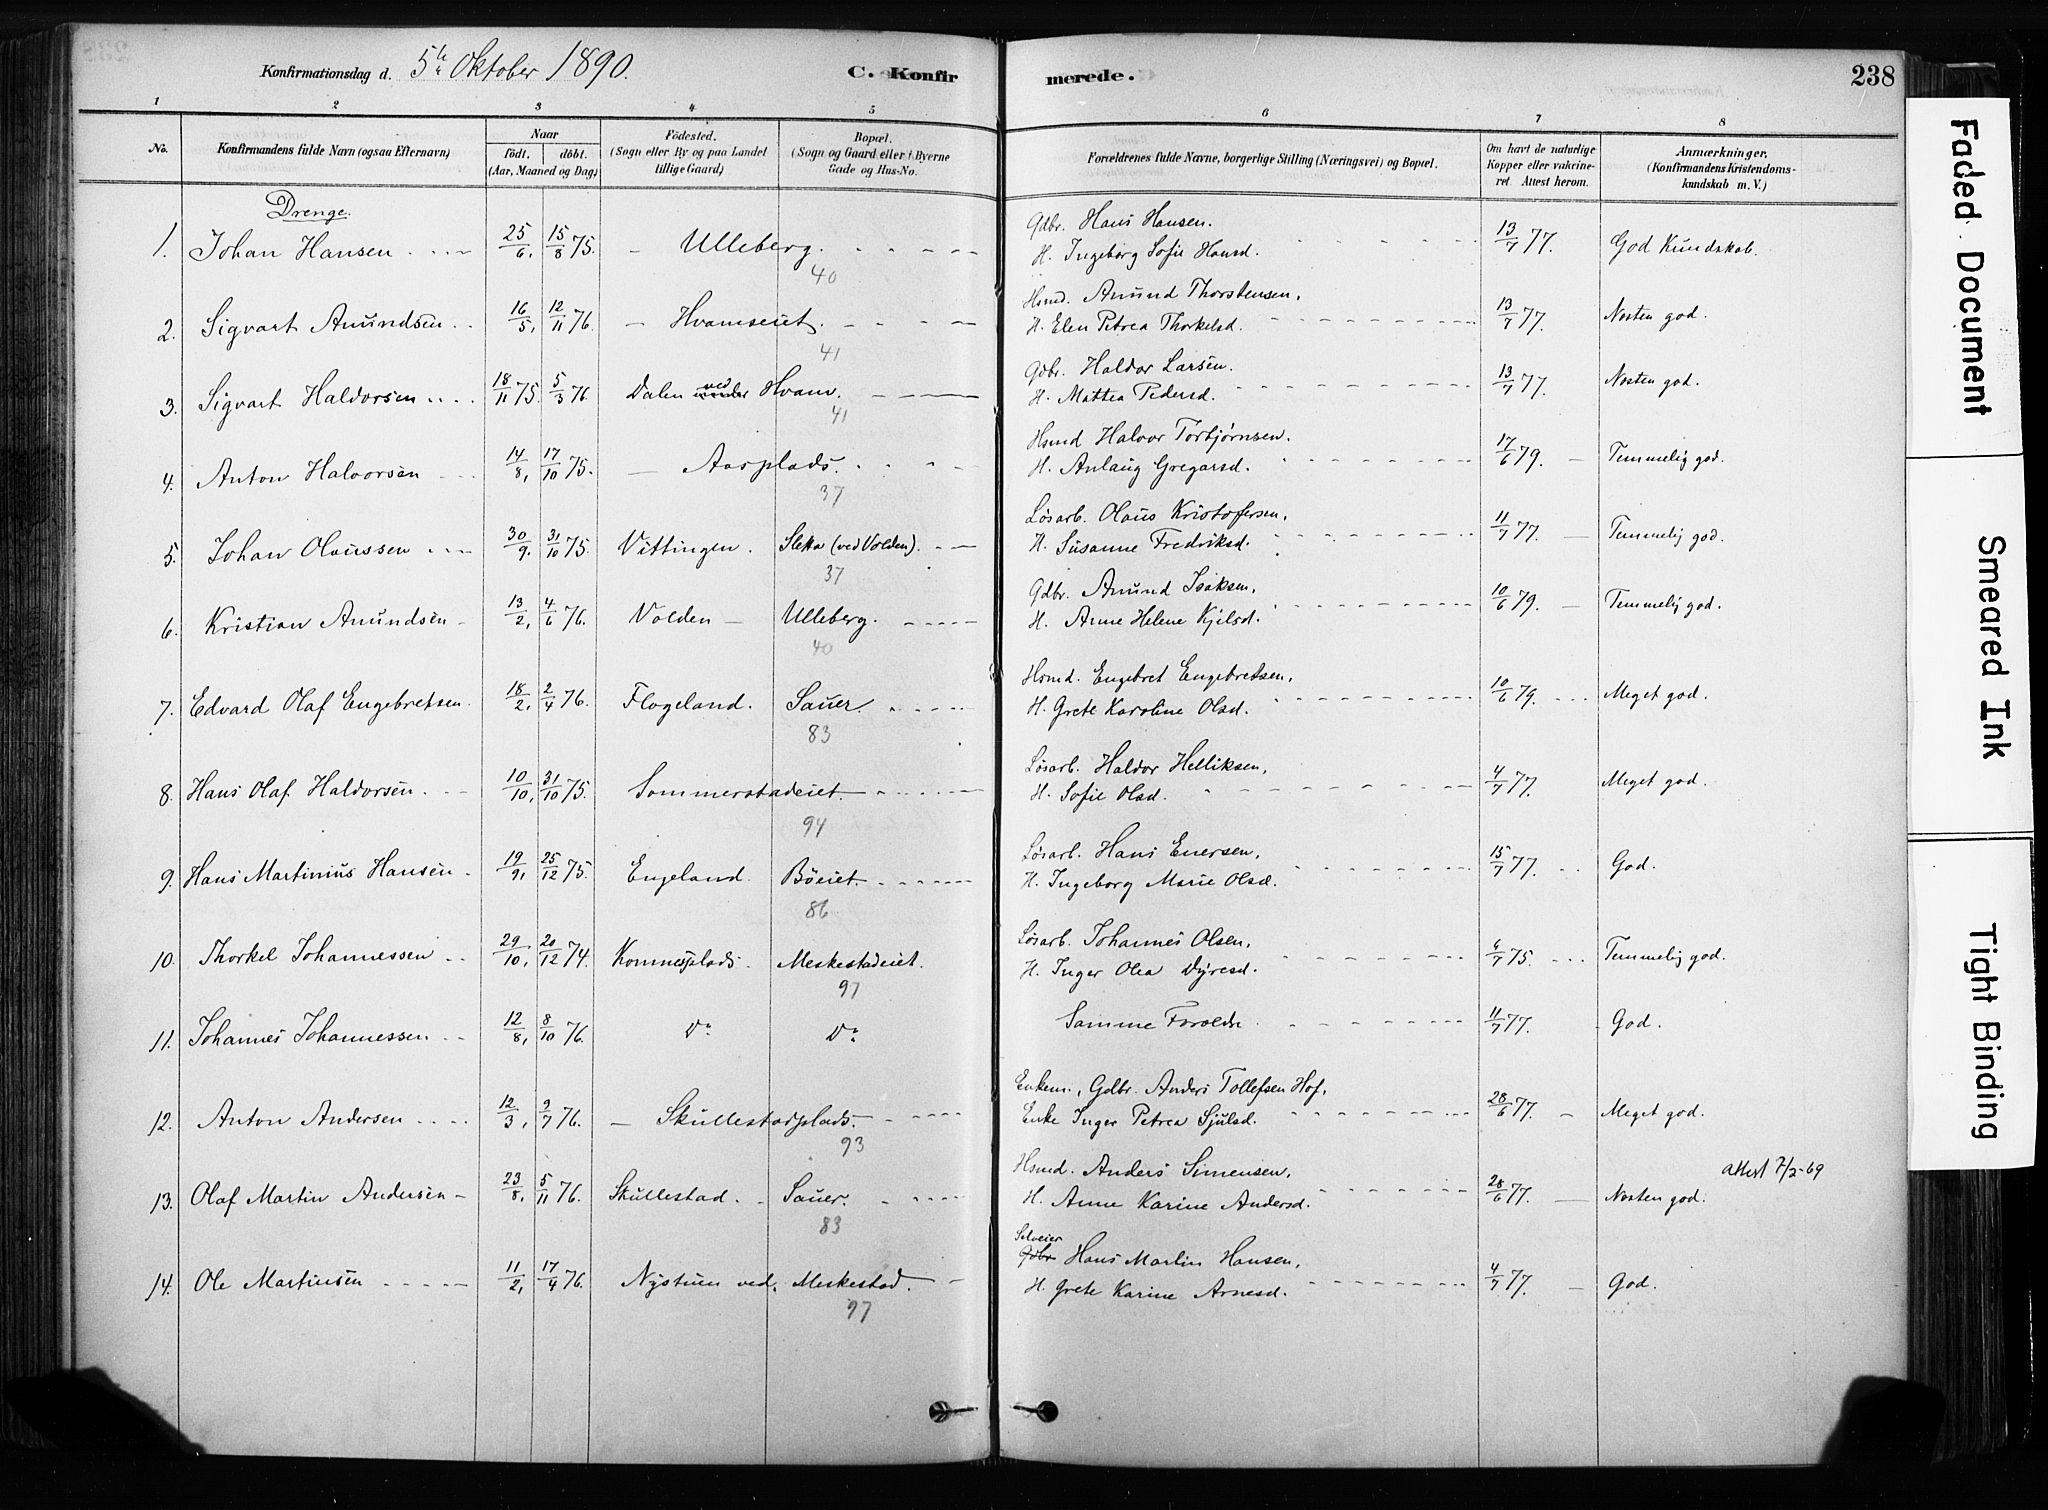 Konfirmationsdag d. 5te Oktober 1890.
C. Konfirmerede.
238
1 2 3 4 5 6 7 8
No. Konfirmandens fulde Navn (ogsaa Efternavn) Naar født. døbt. (Aar, Maaned og Dag) Fødested. (Sogn eller By og paa Landet tillige Gaard) Bopæl. (Sogn og Gaard eller i Byerne Gade og Hus-No. Forældrenes fulde Navne, borgerlige Stilling (Næringsvei) og Bopæl. Om havt de naturlige Kopper eller vakcineret. Attest herom. Anmærkninger. (Konfirmandens Kristendomskundskab m. V.)
Drenge.
1. Johan Hansen 25/6, 15/8 75. – Ulleberg. 40 Gdbr. Hans Hansen. 13/7 77. God Kundskab.
H. Ingeborg Sofie Hansd.
2. Sigvart Amundsen 16/5, 12/11 76. – Hvamseiet. 41 Hsmd. Amund Thorstensen, 13/7 77. Næsten god.
H. Elen Petrea Thorkelsd.
3. Sigvart Haldorsen 18/11 75. 5/3 76. Dalen under ved Hvam. 41 Gdbr. Haldor Larsen. 13/7 77. Næsten god.
H. Mattea Pedersd.
4. Anton Halvorsen 14/8, 17/10 75. – Aasplads. 37 Hsmd Halvor Torbjørnsen. 17/6 79. – Temmelig god.
H. Anlaug Gregarsd.
5. Johan Olaussen 30/9, 31/10 75. Vittingen. Sletta (ved Volden). 37 Løsarb. Olaus Kristofersen, 11/7 77. – Temmelig god.
H. Susanne Fredriksd.
6. Kristian Amundsen 13/2, 4/6 76. Volden – Ulleberg. 40 Gdbr. Amund Isaksen, 10/6 79. – Temmelig god.
H. Anne Helene Kjelsd.
7. Edvard Olaf Engebretsen 18/2, 2/4 76. Flogeland. Sauer. 83 Hsmd. Engebret Engebretsen, 10/6 79. Meget god.
H. Grete Karoline Olsd.
8. Hans Olaf Haldorsen. 10/10, 31/10 75. Sommerstadeiet. 94 Løsarb. Haldor Helliksen, 4/7 77. Meget god.
H. Sofie Olsd.
9. Hans Martinius Hansen 19/9, 25/12 75. Engeland. Böeiet. 86 Løsarb. Hans Enersen, 15/7 77. God.
H. Ingeborg Marie Olsd.
10. Thorkel Johannessen 29/10, 20/12 74. Kommesplads. Meskestadeiet. 97 Løsarb. Johannes Olsen, 6/7 75. Temmelig god.
H. Inger Olea Dyresd.
11. Johannes Johannessen 12/8, 8/10 76. Do Do Samme Forældre 11/7 77. – God.
12. Anton Andersen 12/3, 9/7 76. – Skullestadplads. 93 Enkem., Gdbr. Anders Tollefsen Hof, 28/6 77. – Meget god.
Enke Inger Petrea Sjulsd.
13. Olaf Martin Andersen – 23/8, 5/11 76. Skullestad. – Sauer. 83 Hsmd. Anders Simensen, 28/6 77. – Næsten god. attest 7/2-69
H. Anne Karine Andersd.
14. Ole Martinsen 11/2, 17/4 76. Nystuen ved Meskestad. 97 Selveier Gdbr Hans Martin Hansen, 4/7 77. – God.
H. Grete Karine Arnesd.
Faded Document
Smeared Ink
Tight Binding